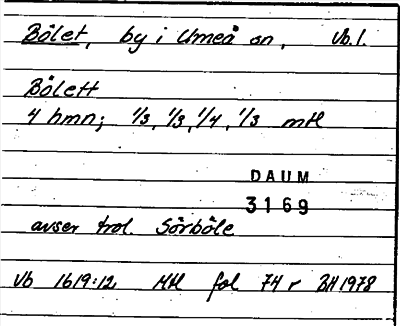 Bölet, by i Umeå sn, Vb.l.
Bölett
4 hmn; 1/3, 1/3, 1/4, 1/3 mtl
DAUM
3169
avser trol. Sörböle
Vb 1619:12 Mtl fol 74 r BH 1978